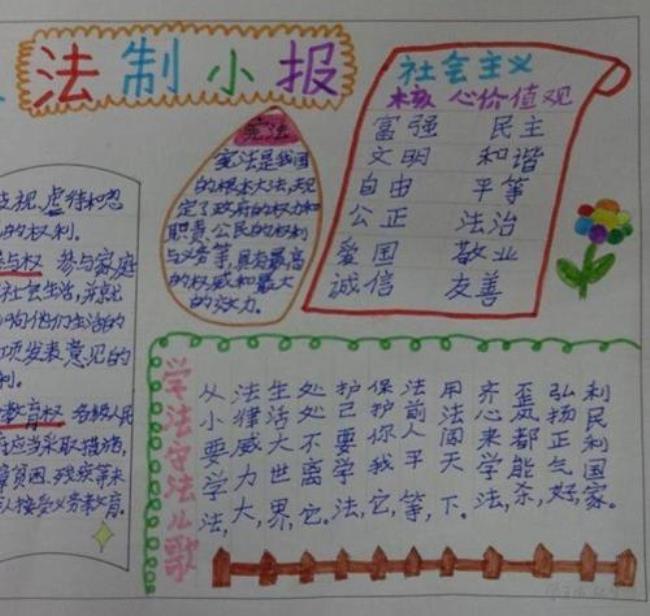 法制小报
宪法
宪法是我国
的根本大法,规
定了政府的权力和
职责、公民的权利
与义务等,具有最高
的权威和最大
的效力。
社会主义
核心价值观
富强 民主
文明 和谐
自由 平等
公正 法治
爱国 敬业
诚信 友善
视、虐待和忽
的权利。
与权 参与家庭
社会生活,并就
响他们生活的
项发表意见的
利。
教育权 各级人民
应当采取措施,
贫困、残疾等未
人接受义务教育。
学法守法儿歌
从小要学法,
法律威力大,
生活大世界,
处处不离它,
护己要学法,
保护你我它,
法前人平等,
用法闯天下。
齐心来学法,
歪风都能杀,
弘扬正气好,
利民利国家。